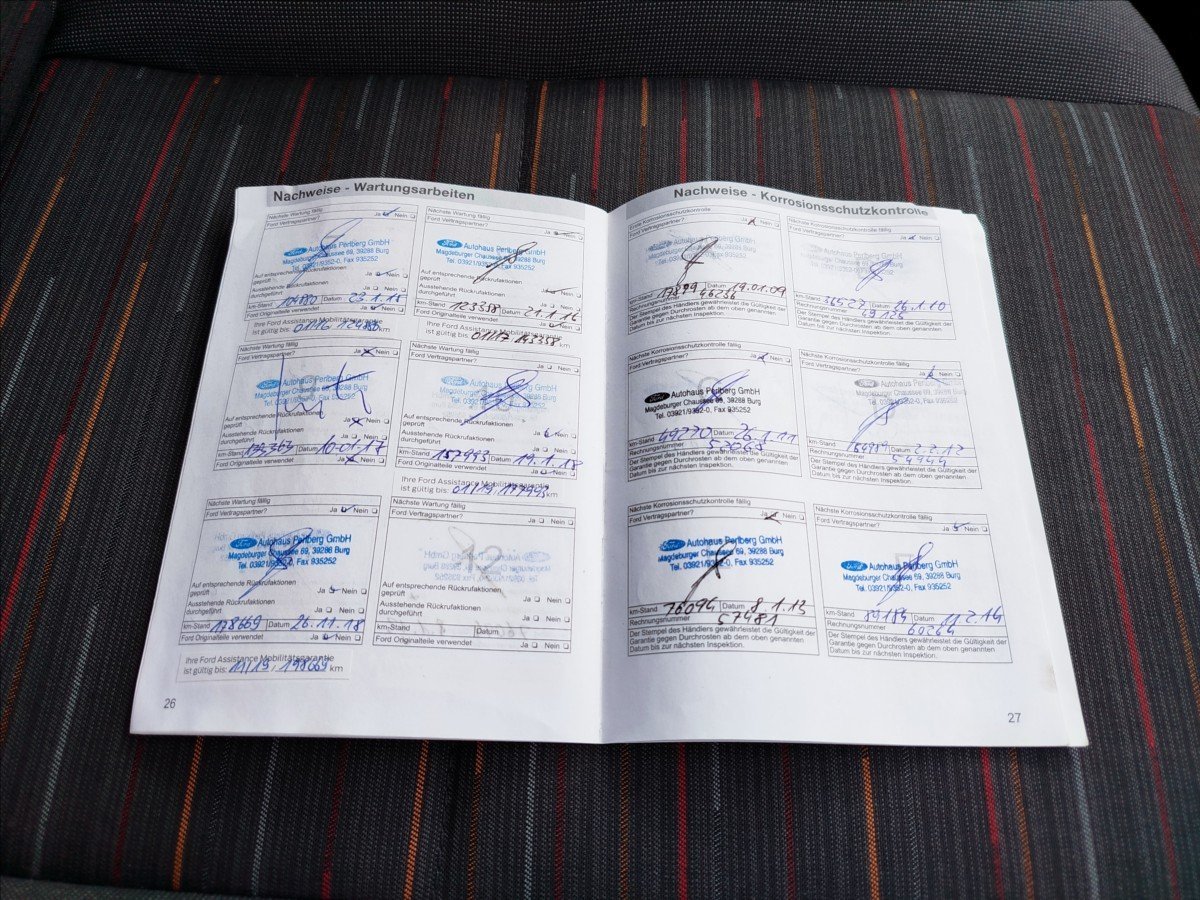 Nachweise - Wartungsarbeiten
Nächste Wartung fällig
Ford Vertragspartner? Ja Nein
Ford Autohaus Perlberg GmbH
Magdeburger Chaussee 69, 39288 Burg
Tel. 03921/9352-0, Fax 935252
Auf entsprechende Rückrufaktionen
geprüft Ja Nein
Ausstehende Rückrufaktionen
durchgeführt Ja Nein
km-Stand Datum 23.1.15
Ford Originalteile verwendet Ja Nein
Ihre Ford Assistance Mobilitätsgarantie
ist gültig bis: 01/16 km
Nächste Wartung fällig
Ford Vertragspartner? Ja Nein
Ford Autohaus Perlberg GmbH
Magdeburger Chaussee 69, 39288 Burg
Tel. 03921/9352-0, Fax 935252
Auf entsprechende Rückrufaktionen
geprüft
Ausstehende Rückrufaktionen
durchgeführt
km-Stand 123358 Datum 21.1.16
Ford Originalteile verwendet Ja Nein
Ihre Ford Assistance Mobilitätsgarantie
ist gültig bis: 01/17 143358 km
Nächste Wartung fällig
Ford Vertragspartner? Ja Nein
Ford Autohaus Perlberg GmbH
Magdeburger Chaussee 69, 39288 Burg
Tel. 03921/9352-0, Fax 935252
Auf entsprechende Rückrufaktionen
geprüft Ja Nein
Ausstehende Rückrufaktionen
durchgeführt Ja Nein
km-Stand Datum 10.01.17
Ford Originalteile verwendet Ja Nein
Nächste Wartung fällig
Ford Vertragspartner? Ja Nein
Ford Autohaus Perlberg GmbH
Magdeburger Chaussee 69, 39288 Burg
Tel. 03921/9352-0, Fax 935252
Auf entsprechende Rückrufaktionen
geprüft Ja Nein
Ausstehende Rückrufaktionen
durchgeführt Ja Nein
km-Stand 157993 Datum 19.1.18
Ford Originalteile verwendet Ja Nein
Ihre Ford Assistance Mobilitätsgarantie
ist gültig bis: 01/19, 177993 km
Nächste Wartung fällig
Ford Vertragspartner? Ja Nein
Ford Autohaus Perlberg GmbH
Magdeburger Chaussee 69, 39288 Burg
Tel. 03921/9352-0, Fax 935252
Auf entsprechende Rückrufaktionen
geprüft Ja Nein
Ausstehende Rückrufaktionen
durchgeführt Ja Nein
km-Stand 178669 Datum 26.11.18
Ford Originalteile verwendet Ja Nein
Ihre Ford Assistance Mobilitätsgarantie
ist gültig bis: 11/19, 198669 km
Nächste Wartung fällig
Ford Vertragspartner? Ja Nein
Auf entsprechende Rückrufaktionen
geprüft Ja Nein
Ausstehende Rückrufaktionen
durchgeführt Ja Nein
km-Stand Datum
Ford Originalteile verwendet Ja Nein
26
Nachweise - Korrosionsschutzkontrolle
Erste Korrosionsschutzkontrolle
Ford Vertragspartner? Ja Nein
Ford Autohaus Perlberg GmbH
Magdeburger Chaussee 69, 39288 Burg
Tel. 03921/9352-0, Fax 935252
km-Stand Datum 19.01.09
Rechnungsnummer 46236
Der Stempel des Händlers gewährleistet die Gültigkeit der
Garantie gegen Durchrosten ab dem oben genannten
Datum bis zur nächsten Inspektion.
Nächste Korrosionsschutzkontrolle fällig
Ford Vertragspartner? Ja Nein
Ford Autohaus Perlberg GmbH
Magdeburger Chaussee 69, 39288 Burg
Tel. 03921/9352-0, Fax 935252
km-Stand 36527 Datum 26.1.10
Rechnungsnummer 49125
Der Stempel des Händlers gewährleistet die Gültigkeit der
Garantie gegen Durchrosten ab dem oben genannten
Datum bis zur nächsten Inspektion.
Nächste Korrosionsschutzkontrolle fällig
Ford Vertragspartner? Ja Nein
Ford Autohaus Perlberg GmbH
Magdeburger Chaussee 69, 39288 Burg
Tel. 03921/9352-0, Fax 935252
km-Stand 49770 Datum 26.1.11
Rechnungsnummer 52065
Der Stempel des Händlers gewährleistet die Gültigkeit der
Garantie gegen Durchrosten ab dem oben genannten
Datum bis zur nächsten Inspektion.
Nächste Korrosionsschutzkontrolle fällig
Ford Vertragspartner? Ja Nein
Ford Autohaus Perlberg GmbH
Magdeburger Chaussee 69, 39288 Burg
Tel. 03921/9352-0, Fax 935252
km-Stand Datum 2.2.12
Rechnungsnummer 54944
Der Stempel des Händlers gewährleistet die Gültigkeit der
Garantie gegen Durchrosten ab dem oben genannten
Datum bis zur nächsten Inspektion.
Nächste Korrosionsschutzkontrolle fällig
Ford Vertragspartner? Ja Nein
Ford Autohaus Perlberg GmbH
Magdeburger Chaussee 69, 39288 Burg
Tel. 03921/9352-0, Fax 935252
km-Stand 76094 Datum 8.1.13
Rechnungsnummer 57481
Der Stempel des Händlers gewährleistet die Gültigkeit der
Garantie gegen Durchrosten ab dem oben genannten
Datum bis zur nächsten Inspektion.
Nächste Korrosionsschutzkontrolle fällig
Ford Vertragspartner? Ja Nein
Ford Autohaus Perlberg GmbH
Magdeburger Chaussee 69, 39288 Burg
Tel. 03921/9352-0, Fax 935252
km-Stand 89184 Datum 11.2.14
Rechnungsnummer 60264
Der Stempel des Händlers gewährleistet die Gültigkeit der
Garantie gegen Durchrosten ab dem oben genannten
Datum bis zur nächsten Inspektion.
27